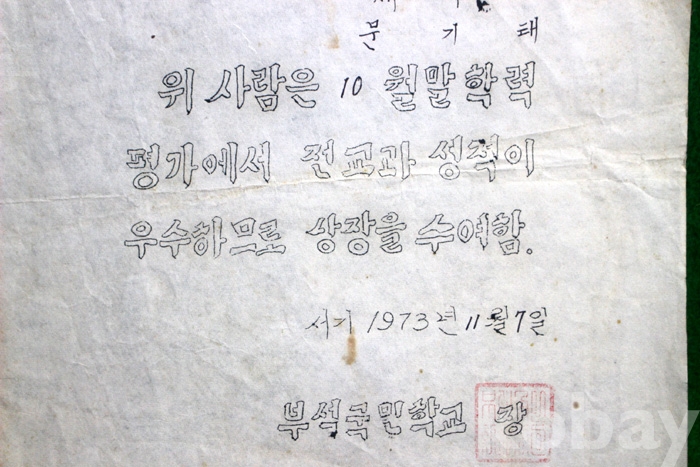 문 기 태
위 사람은 10 월말 학력
평가에서 전교과 성적이
우수하므로 상장을 수여함.
서기 1973년 11월 7일
부석국민학교 장
kobay